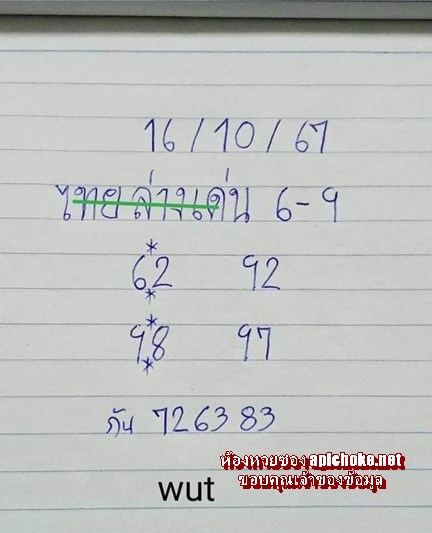 16/10/67
ไทยล่างเด่น 6-9
*
62 92
*
*
98 97
*
กัน 726383
ห้องหวยซอง apichoke.net
ขอบคุณเจ้าของข้อมูล
wut